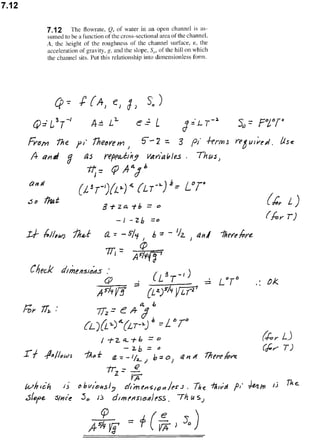 7.12
7.12 The flowrate, Q, of water in an open channel is as-
sumed to be a function of the cross-sectional area of the channel,
A, the height of the roughness of the channel surface, ε, the
acceleration of gravity, g, and the slope, S₀, of the hill on which
the channel sits. Put this relationship into dimensionless form.
Q = f (A, ε, g, S₀)
Q ≐ L³T⁻¹ A ≐ L² ε ≐ L g ≐ LT⁻² S₀ ≐ F⁰L⁰T⁰
From the pi theorem, 5-2 = 3 pi terms required. Use
A and g as repeating variables. Thus,
π₁ = Q Aᵃ gᵇ
and
(L³T⁻¹)(L²)ᵃ (LT⁻²)ᵇ ≐ L⁰T⁰
so that
3 + 2a + b = 0 (for L)
-1 -2b = 0 (for T)
It follows that a = -5/4, b = -1/2, and therefore
π₁ = Q / A^5/4 √g
Check dimensions:
Q / A^5/4 √g ≐ (L³T⁻¹) / (L²)^5/4 √LT⁻² ≐ L⁰T⁰ ∴ OK
For π₂:
π₂ = ε Aᵃ gᵇ
(L)(L²)ᵃ(LT⁻²)ᵇ ≐ L⁰T⁰
1 + 2a + b = 0 (for L)
-2b = 0 (for T)
It follows that a = -1/2, b = 0, and therefore
π₂ = ε / √A
which is obviously dimensionless. The third pi term is the
slope since S₀ is dimensionless. Thus,
Q / A^5/4 √g = φ (ε / √A, S₀)